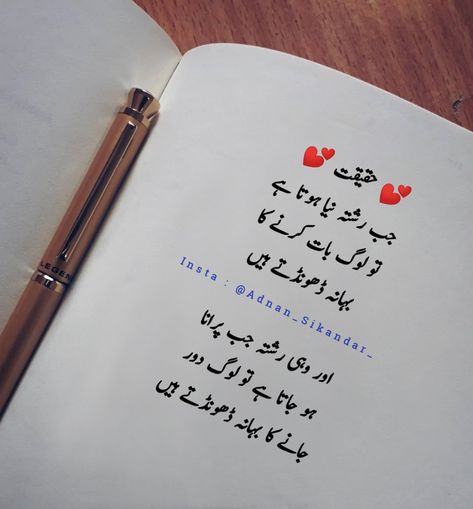 💕 حقیقت 💕
جب رشتہ نیا ہوتا ہے
تو لوگ بات کرنے کا
بہانہ ڈھونڈتے ہیں
Insta : @Adnan_Sikandar_
اور وہی رشتہ جب پرانا
ہو جاتا ہے تو لوگ دور
جانے کا بہانہ ڈھونڈتے ہیں
LEGEND